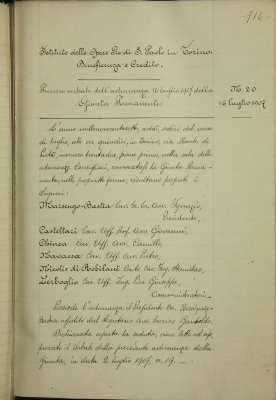 -716-
Istituto delle Opere Pie di S. Paolo in Torino
Beneficenza e Credito.
Processo verbale dell'adunanza 16 luglio 1907 della
Giunta Permanente.
N. 20
16 luglio 1907
L'anno millenovecentosette, addì sedici del mese
di luglio, alle ore quindici, in Torino, via Monte di
Pietà, numero trentadue, piano primo, nella sala delle
adunanze Consigliari, convocatasi la Giunta Perma-
nente, nelle prescritte forme, risultano presenti i
Signori:
Marsengo-Bastia Cav. Gr. Cr. Avv. Ignazio,
Presidente,
Castellari Cav. Uff. Prof. Avv. Giovanni,
Chinea Cav. Uff. Avv. Camillo,
Ravassa Cav. Uff. Avv. Pietro,
Nicolis di Robilant Conte Cav. Ing. Stanislao,
Zerboglio Cav. Uff. Ing. Pier Giuseppe,
Amministratori.
Presiede l'adunanza il Presidente On. Marsengo-
Bastia assistito dal Segretario Cav. Enrico
Dichiarata aperta la seduta, viene letto ed ap-
provato il Verbale della precedente adunanza della
Giunta, in data 2 luglio 1907, n. 19. -